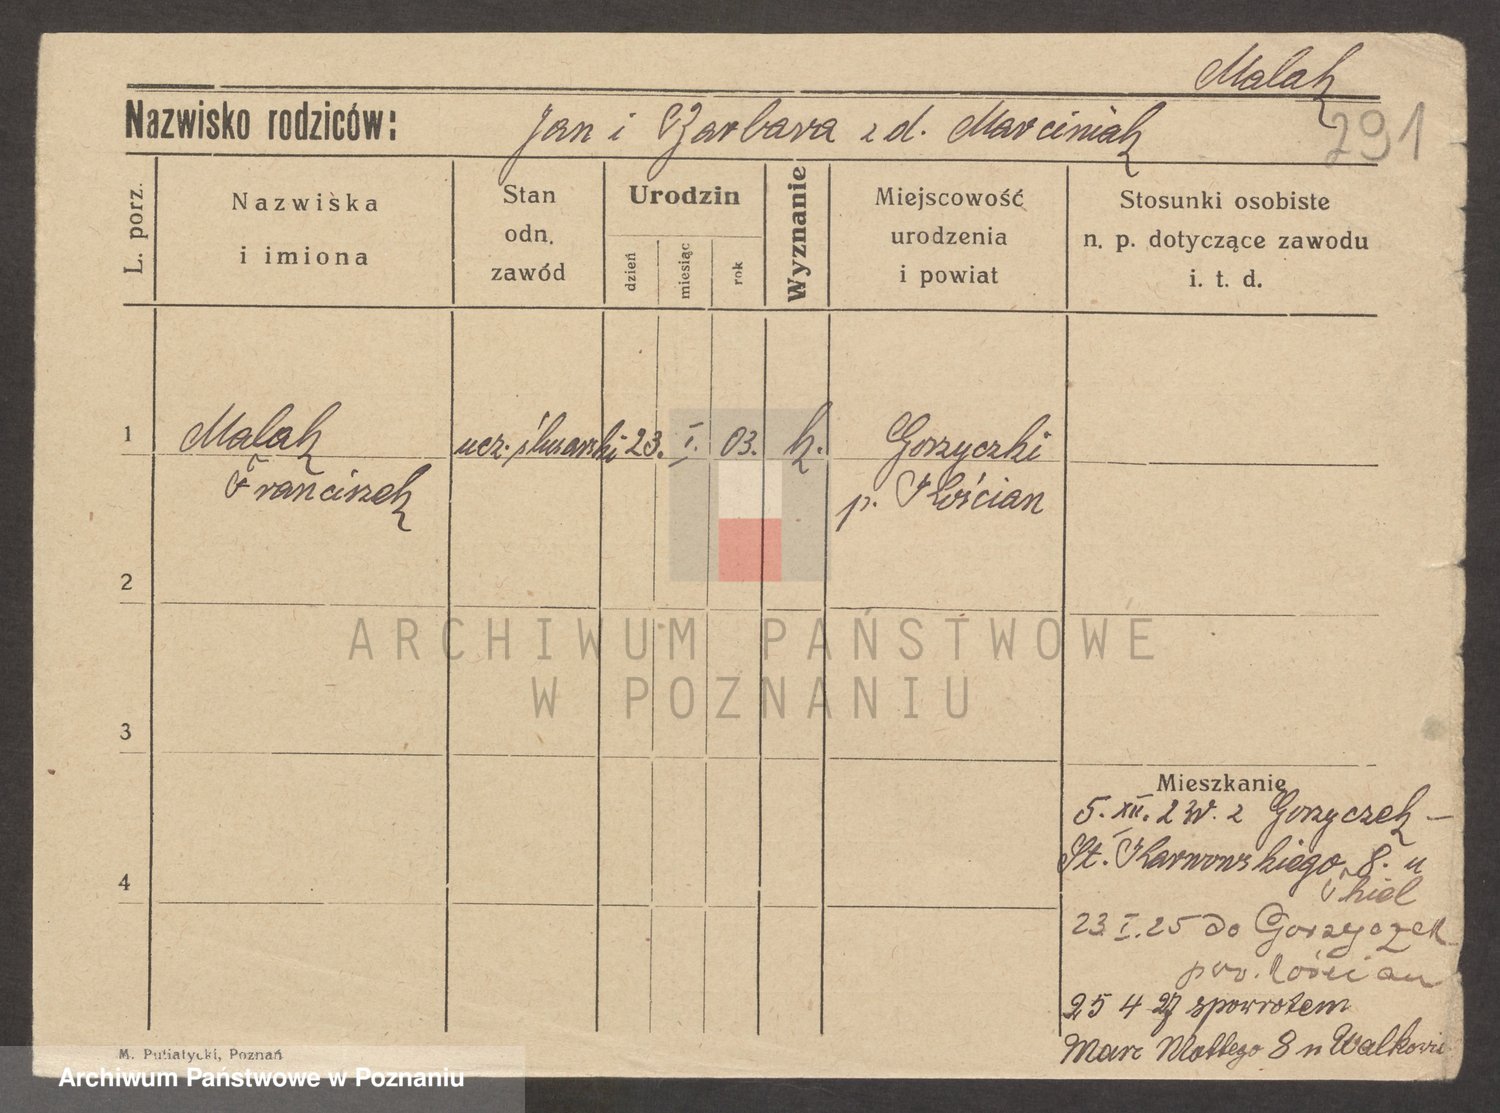 Malak
291
Nazwisko rodziców: Jan i Barbara z d. Marciniak
L. porz.
Nazwiska
i imiona
Stan
odn.
zawód
Urodzin
dzień
miesiąc
rok
Wyznanie
Miejscowość
urodzenia
i powiat
Stosunki osobiste
n. p. dotyczące zawodu
i. t. d.
1
Malak
Franciszek
ucz. ślusarski
23.
I.
03.
k.
Gorzyczki
p. Kościan
2
3
4
Mieszkanie
5. XII. 2 z Gorzyczek —
St. Karwowskiego 8. u
23. I. 25 do Gorzyczek
pow. Kościan
25 4 27 spowrotem
Marc Mottego 8 n
M. Putiatycki, Poznań
ARCHIWUM PAŃSTWOWE
W POZNANIU
Archiwum Państwowe w Poznaniu